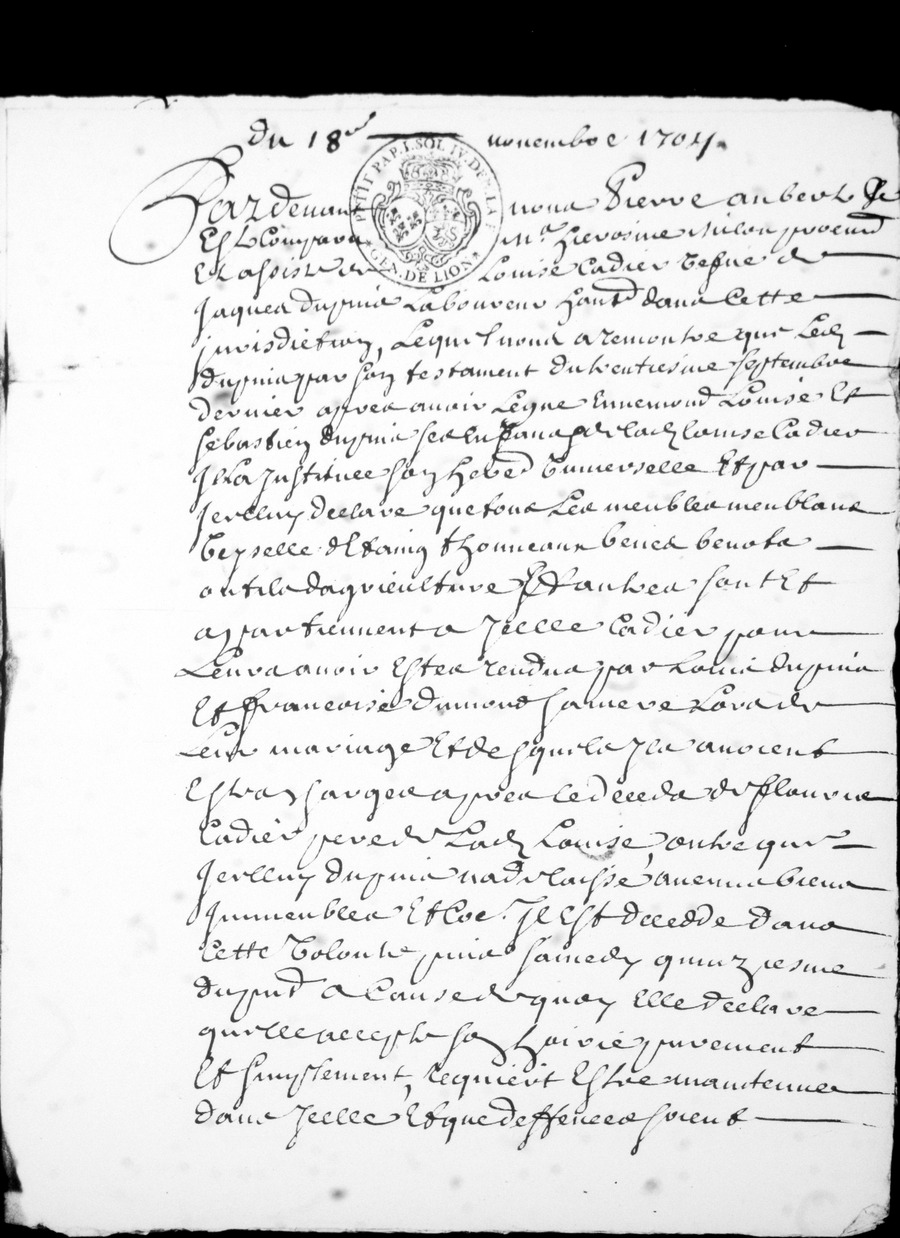 du 18e novembre 1704.
PETIT PAP. I. SOL IV. DE. LA GEN. DE LION
Pardevant nous Pierre aubert
Est Comparu Me hierosme milon procur
Et assisté de Louise Cadier vefve de
Jaques dupuis Laboureur hantd dans Cette
jurisdiction, Lequel nous a remontré que Led
dupuis par son testament du trentiesme septembre
dernier apres avoir Legué Ennemond Louise Et
sebastien dupuis ses Enfans & de lad louise Cadier
Il La Institué son hered universelle Et par
Icelluy declaré que tous Les meubles meublans
veyselle d'Etaing thonneaux benes benots
outils dagriculture Et autres sont Et
appartiennent a Icelle Cadier pour
Leurs avoir Estes rendus par Louis dupuis
Et francoise dumond sa mere Lors de
Leur mariage Et desquels Ils avoient
Estes chargés apres le deceds de fleurie
Cadier pere de Lad Louise, outre que
Icelluy dupuis na delaissé aucuns biens
Immeubles Et Coe. Il Est decedé dans
Cette volonté puis samedy quinziesme
du pnt a Cause de quoy Elle declare
quelle accepte son hoirie purement
Et simplement, requiert Estre maintenue
dans Icelle Et que deffences soient